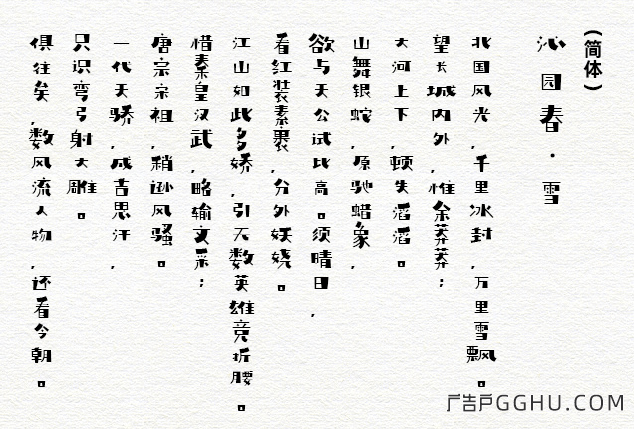 (简体)
沁园春·雪
北国风光,千里冰封,万里雪飘。
望长城内外,惟余莽莽:
大河上下,顿失滔滔。
山舞银蛇,原驰蜡象,
欲与天公试比高。须晴日,
看红装素裹,分外妖娆。
江山如此多娇,引无数英雄竞折腰。
惜秦皇汉武,略输文采:
唐宗宋祖,稍逊风骚。
一代天骄,成吉思汗,
只识弯弓射大雕。
俱往矣,数风流人物,还看今朝。
广告户GGHU.COM